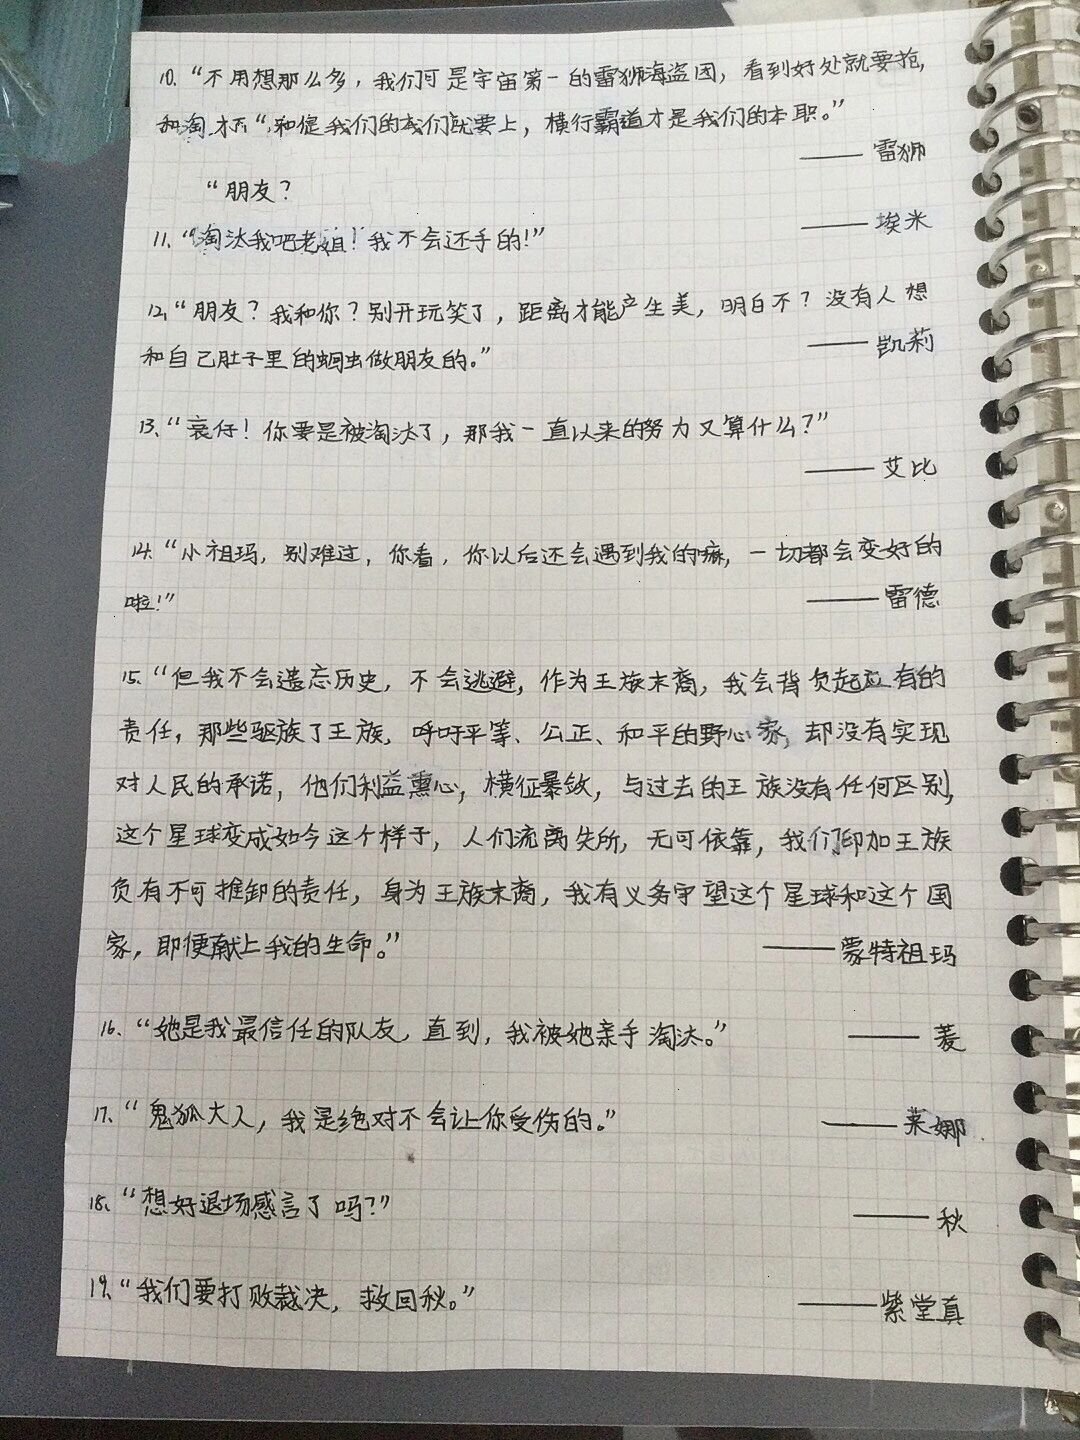 10. “不用想那么多，我们可是宇宙第一的雷狮海盗团，看到好处就要抢，
和淘 “和是我们的我们就要上，横行霸道才是我们的本职。”
——— 雷狮
“朋友？
11、“淘汰我吧老姐！我不会还手的！”
——— 埃米
12、“朋友？我和你？别开玩笑了，距离才能产生美，明白不？没有人想
和自己肚子里的蛔虫做朋友的。”
——— 凯莉
13、“衰仔！你要是被淘汰了，那我一直以来的努力又算什么？”
——— 艾比
14、“小祖玛，别难过，你看，你以后还会遇到我的嘛，一切都会变好的
啦！”
——— 雷德
15、“但我不会遗忘历史，不会逃避，作为王族末裔，我会背负起应有的
责任，那些驱族了王族，呼吁平等、公正、和平的野心家，却没有实现
对人民的承诺，他们利益熏心，横征暴敛，与过去的王族没有任何区别，
这个星球变成如今这个样子，人们流离失所，无可依靠，我们印加王族
负有不可推卸的责任，身为王族末裔，我有义务守望这个星球和这个国
家，即便献上我的生命。”
——— 蒙特祖玛
16、“她是我最信任的队友，直到，我被她亲手淘汰。”
——— 菱
17、“鬼狐大人，我是绝对不会让你受伤的。”
——— 莱娜
18、“想好退场感言了吗？”
——— 秋
19、“我们要打败裁决，救回秋。”
——— 紫堂真